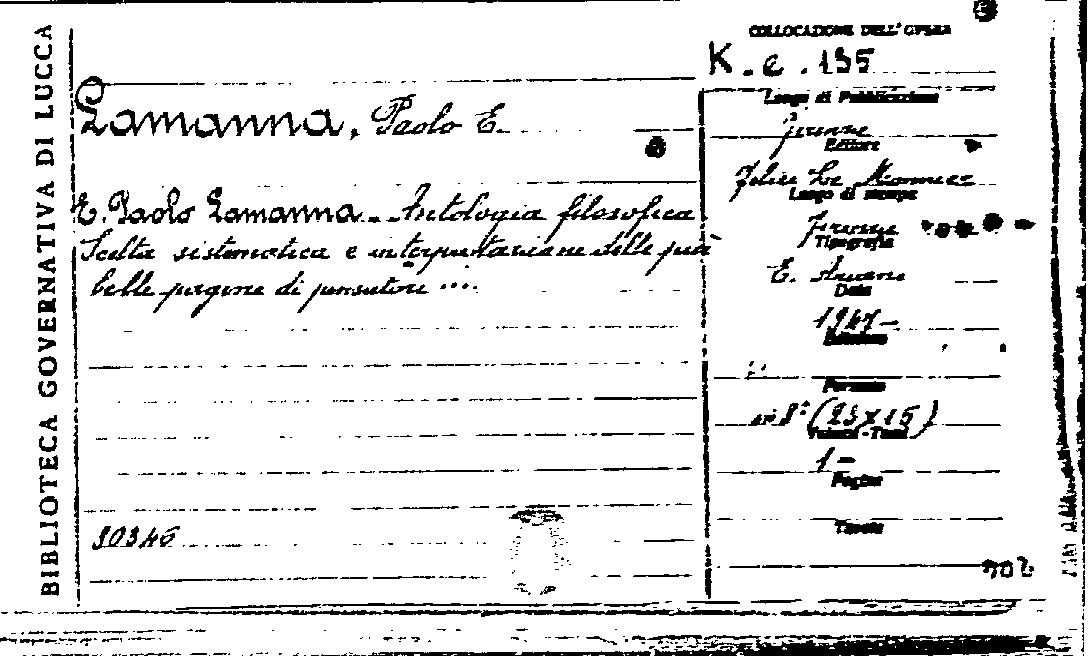 BIBLIOTECA GOVERNATIVA DI LUCCA
Lamanna, Paolo E.
E. Paolo Lamanna - Antologia filosofica
Scelta sistematica e interpretazione delle più
belle pagine di pensatori ....
30346
COLLOCAZIONE DELL'OPERA
K. e. 135
Luogo di Pubblicazione
Firenze
Editore
Felice Le Monnier
Luogo di stampa
Firenze
Tipografia
E. Ariani
Data
1947 -
Edizione
Formato
in 8° (23 x 15)
Volumi - Tomi
1 -
Pagine
Tavole